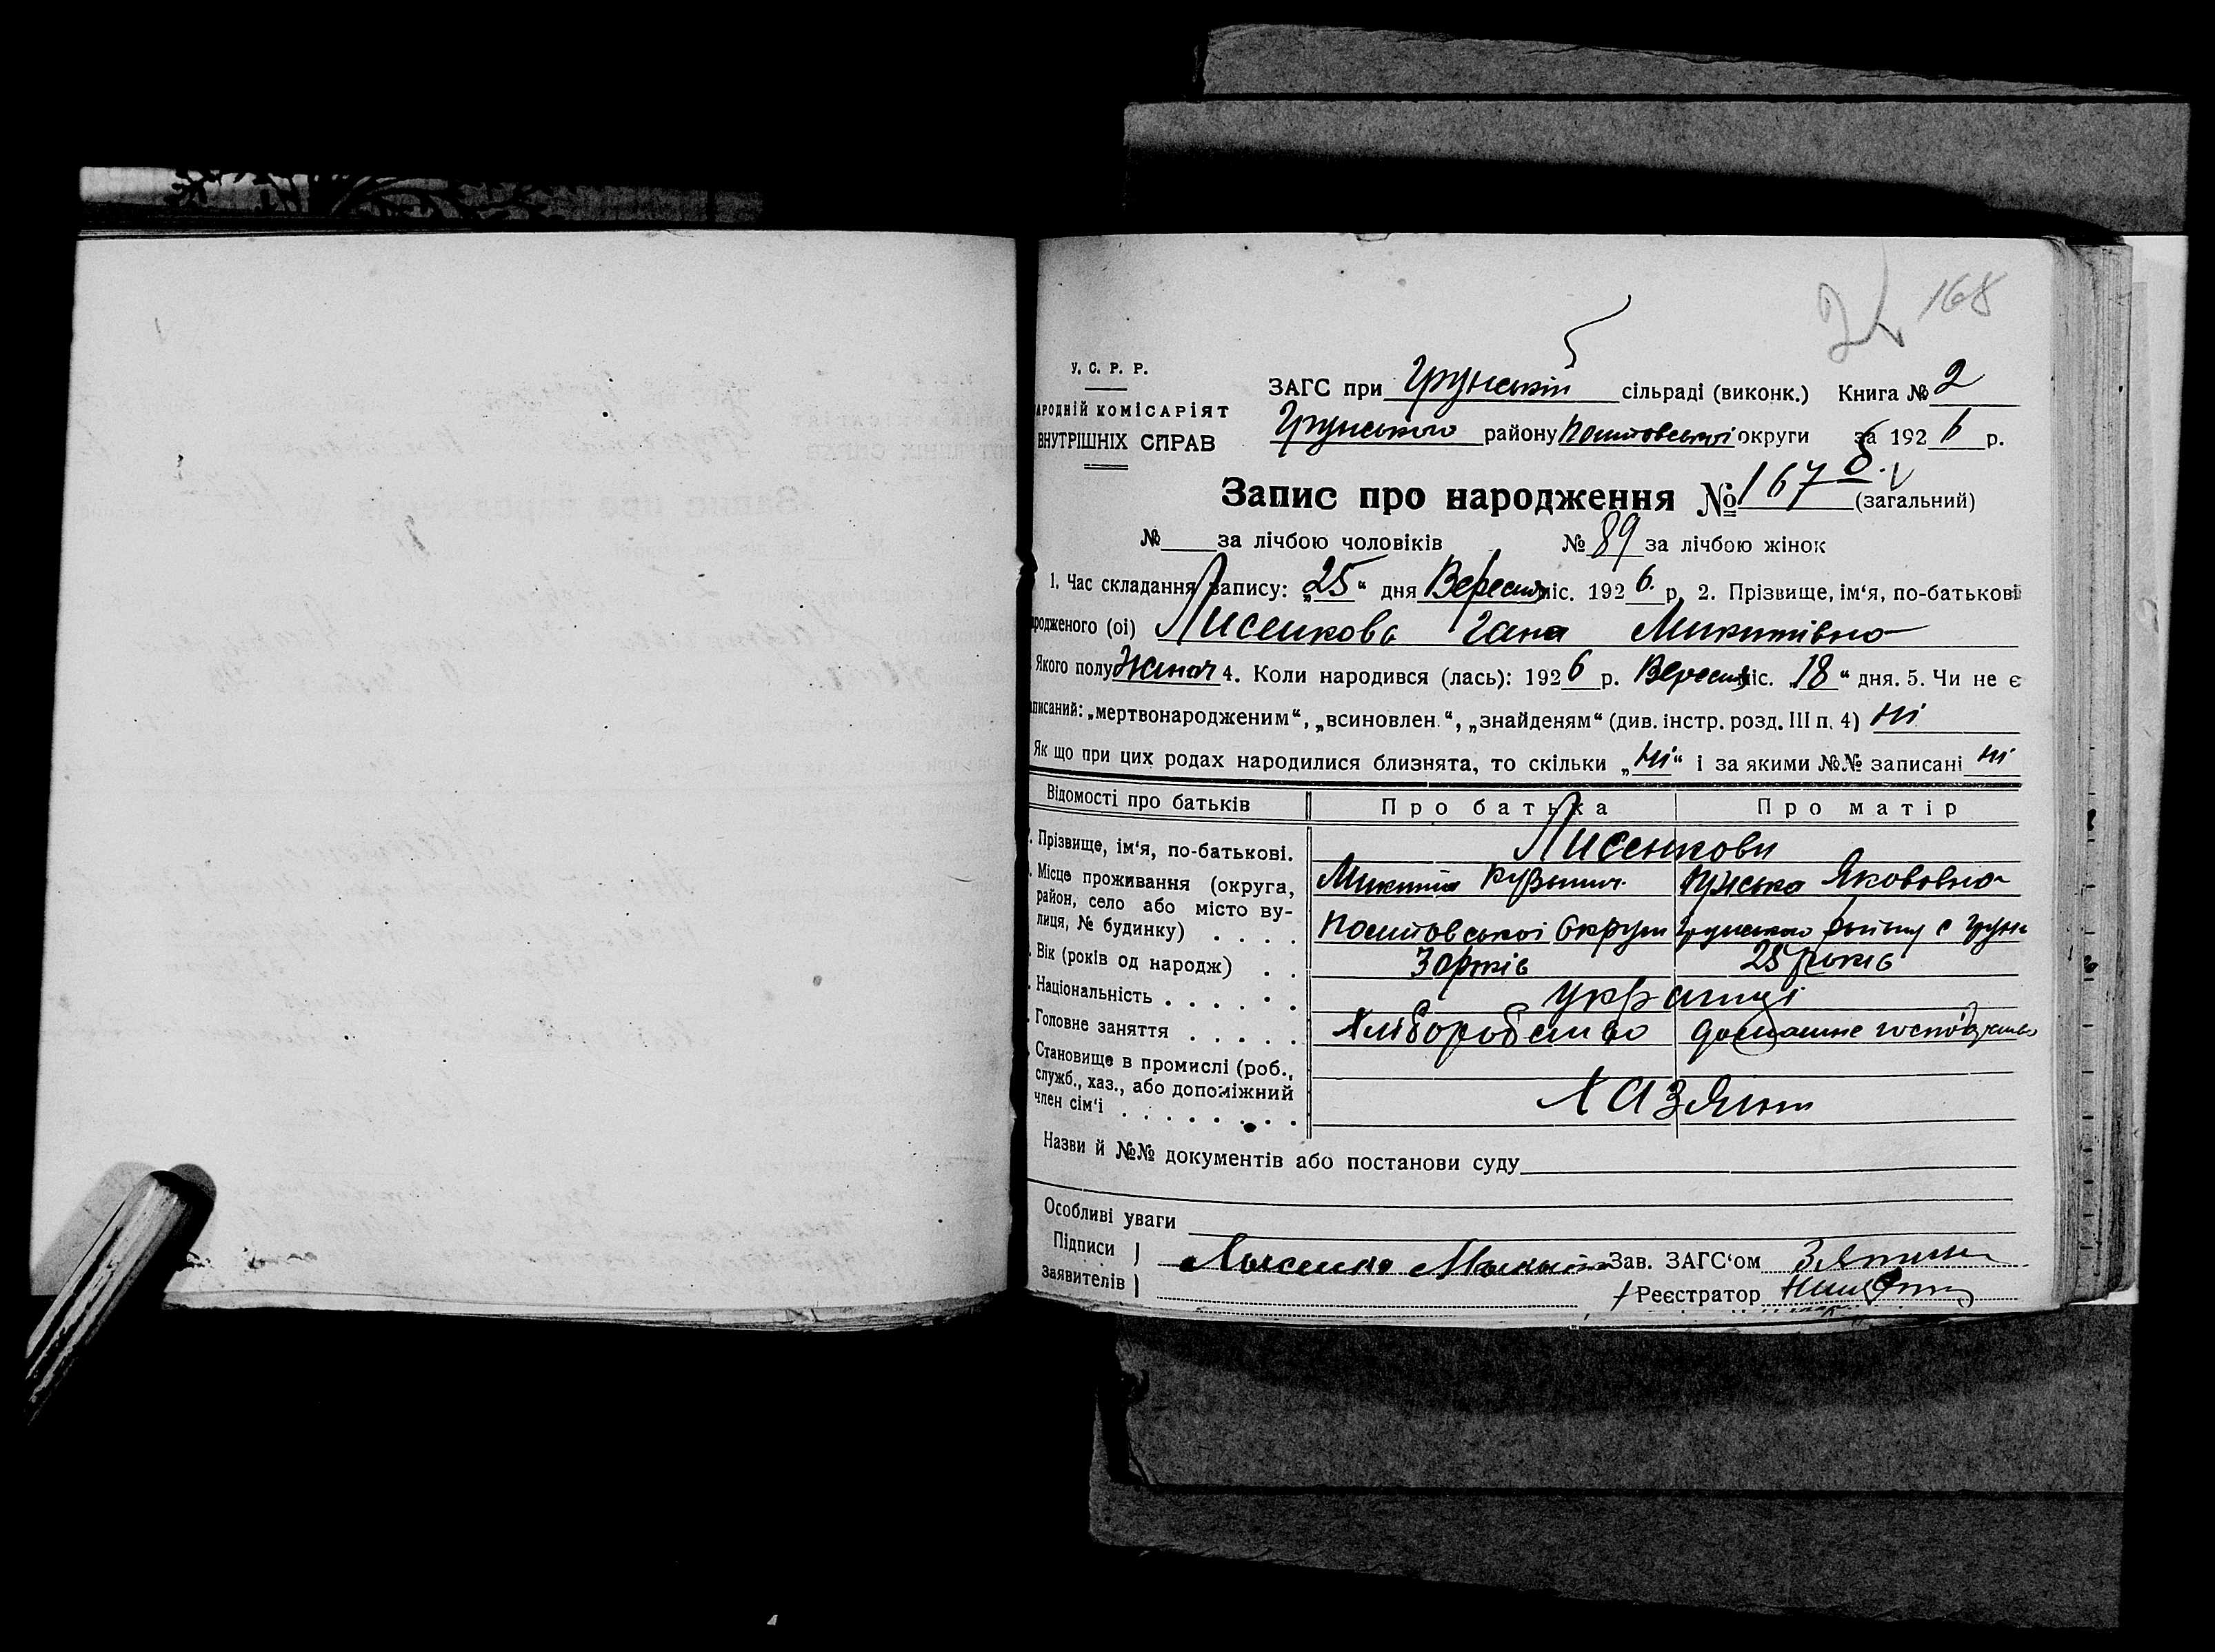 168
У. С. Р. Р.
ЗАГС при Грунській сільраді (виконк.) Книга № 2
АРОДНІЙ КОМІСАРІЯТ
ВНУТРІШНІХ СПРАВ
Грунського району округи за 1926 р.
Запис про народження № 167 (загальний)
№ за лічбою чоловіків № 89 за лічбою жінок
1. Час складання запису: „25“ дня Вересня міс. 1926. р. 2. Прізвище, ім‘я, по-батькові
родженого (ої) Лисенкова Гана Микитівна
Якого полу Жіноч 4. Коли народився (лась): 1926 р. Вересня міс. „18“ дня. 5. Чи не є
аписаний: „мертвонародженим“, „всиновлен.“, „знайденям“ (див. інстр. розд. III п. 4) ні
Як що при цих родах народилися близнята, то скільки „ні“ і за якими №№ записані ні
Відомості про батьків Про батька Про матір
Прізвище, ім‘я, по-батькові. Лисенкови
Микита Кузьмич Якововна
Місце проживання (округа,
район, село або місто ву-
лиця, № будинку) . . . . округи Грунського району с Грунь
Вік (років од народж) . . 30 років 25 років
Національність . . . . . . українці
Головне заняття . . . . . Хліборобство домашнє господарство
Становище в промислі (роб.,
служб., хаз., або допоміжний
член сім‘ї . . . . . . . . хазяїни
Назви й №№ документів або постанови суду
Особливі уваги
Підписи
заявителів
Лысенко Зав. ЗАГС‘ом
Реєстратор